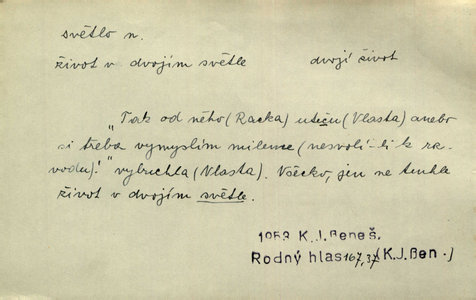 světlo n.
život v dvojím světle dvojí život
"Tak od něho (Racka) uteču (Vlasta) anebo
si třeba vymyslím milence (nesvolí-li k roz-
vodu)!" vybuchla (Vlasta). Všecko, jen ne tenhle
život v dvojím světle.
1953 K.J.Beneš.
Rodný hlas 167,37 (K.J.Ben.)